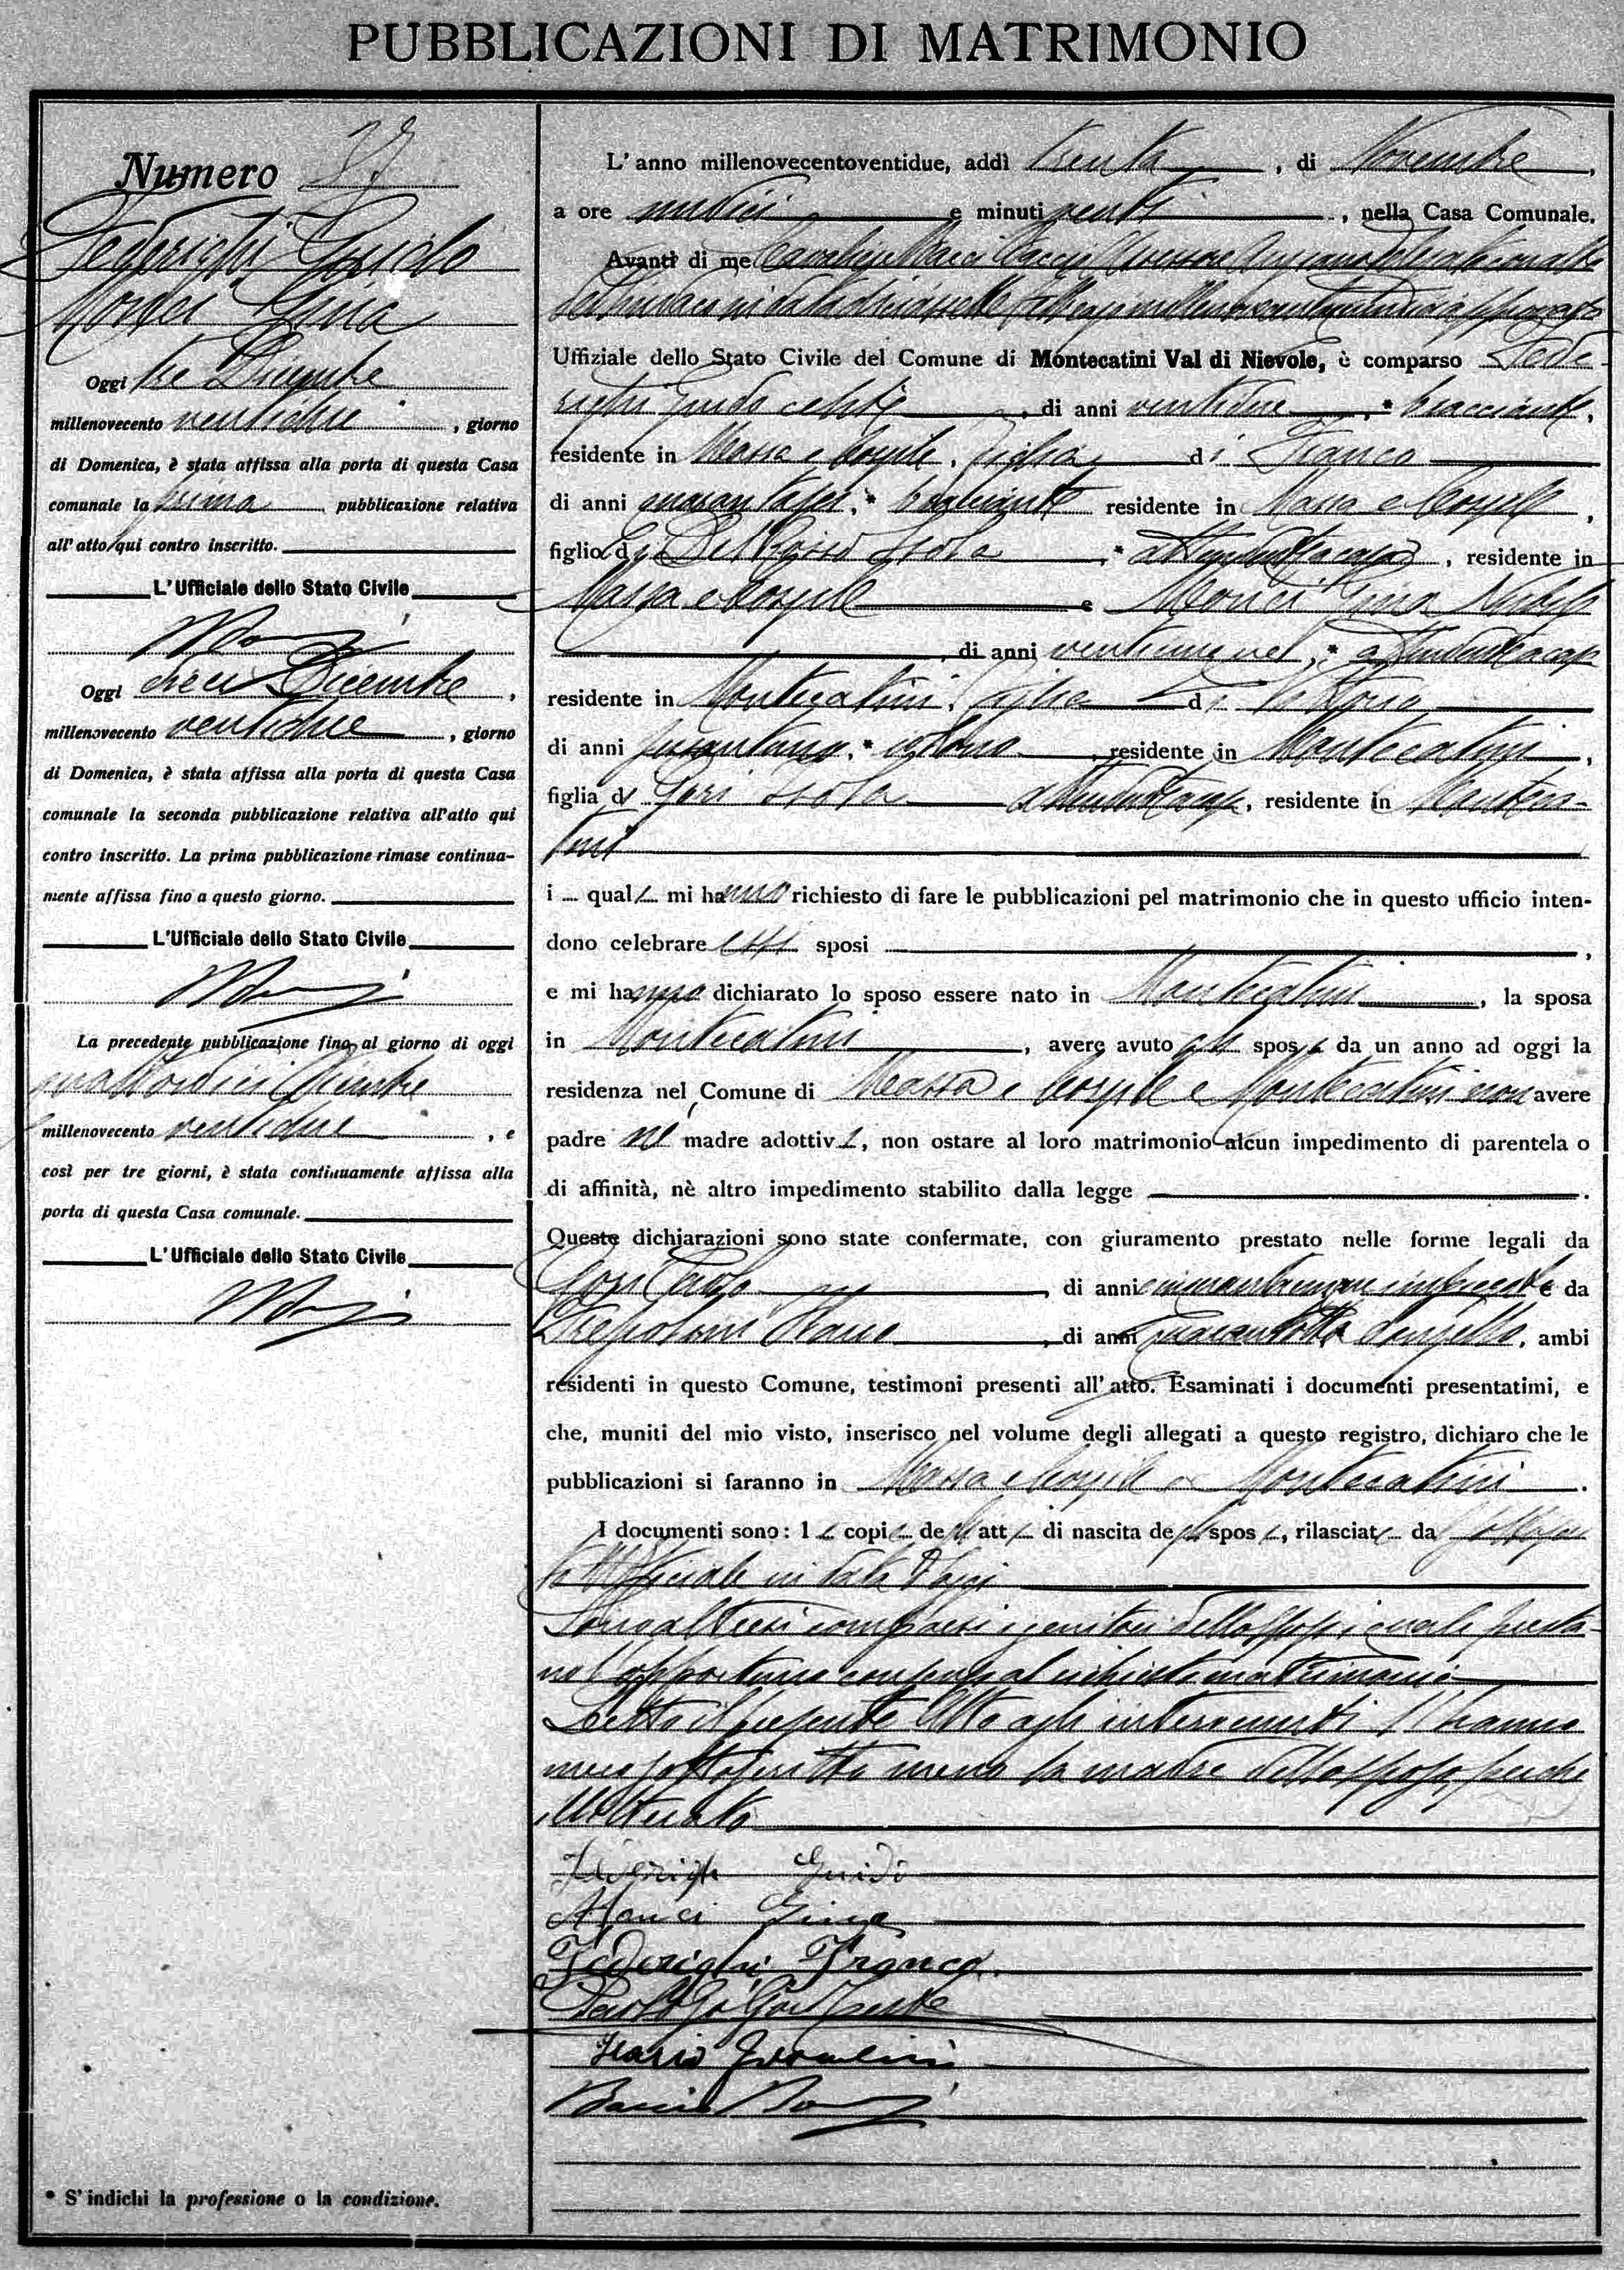 PUBBLICAZIONI DI MATRIMONIO
Numero
Federighi Guido
Monci Gina
Oggi tre Dicembre
millenovecento ventidue, giorno
di Domenica, è stata affissa alla porta di questa Casa
comunale la prima pubblicazione relativa
all'atto qui contro inscritto.
L'Ufficiale dello Stato Civile
Oggi dieci Dicembre,
millenovecento ventidue, giorno
di Domenica, è stata affissa alla porta di questa Casa
comunale la seconda pubblicazione relativa all'atto qui
contro inscritto. La prima pubblicazione rimase continua-
mente affissa fino a questo giorno.
L'Ufficiale dello Stato Civile
La precedente pubblicazione fino al giorno di oggi
quattordici Dicembre
millenovecento ventidue, e
così per tre giorni, è stata continuamente affissa alla
porta di questa Casa comunale.
L'Ufficiale dello Stato Civile
* S'indichi la professione o la condizione.
L'anno millenovecentoventidue, addì trenta, di Novembre,
a ore undici e minuti venti, nella Casa Comunale.
Avanti di me
del Sindaco in data approvata
Uffiziale dello Stato Civile del Comune di Montecatini Val di Nievole, è comparso Fede
righi Guido celibe, di anni ventidue, * bracciante,
residente in Massa e Cozzile, figlio di Franco
di anni quarantasei, * bracciante residente in Massa e Cozzile,
figlio di Del Rosso Isola, * attendente a casa, residente in
Massa e Cozzile e Monci Gina Nubile
, di anni venticinque, * attendente a casa
residente in Montecatini, figlia di Vittorio
di anni * colono, residente in Montecatini,
figlia di Gori Isola attendente a casa, residente in Monteca-
tini
i quali mi hanno richiesto di fare le pubblicazioni pel matrimonio che in questo ufficio inten-
dono celebrare essi sposi,
e mi hanno dichiarato lo sposo essere nato in Montecatini, la sposa
in Montecatini, avere avuto gli sposi da un anno ad oggi la
residenza nel Comune di Massa e Cozzile e Montecatini non avere
padre nè madre adottivi, non ostare al loro matrimonio alcun impedimento di parentela o
di affinità, nè altro impedimento stabilito dalla legge.
Queste dichiarazioni sono state confermate, con giuramento prestato nelle forme legali da
Gori Paolo, di anni cinquantacinque impiegato e da
Ilario, di anni quarantotto donzello, ambi
residenti in questo Comune, testimoni presenti all'atto. Esaminati i documenti presentatimi, e
che, muniti del mio visto, inserisco nel volume degli allegati a questo registro, dichiaro che le
pubblicazioni si faranno in Massa e Cozzile e Montecatini.
I documenti sono: le copie degli atti di nascita degli sposi, rilasciate da
to Ufficiale in data d'oggi
Sono altresì comparsi i genitori dello sposo i quali presta
no l'opportuno consenso al richiesto matrimonio
Letto il presente Atto agli intervenuti l'hanno
meco sottoscritto meno la madre dello sposo perché
illetterata
Federighi Guido
Monci Gina
Federighi Franco
Ilario
Baccio